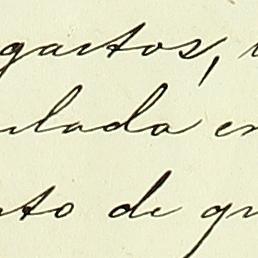 gastos,
ulada en
nto de qu